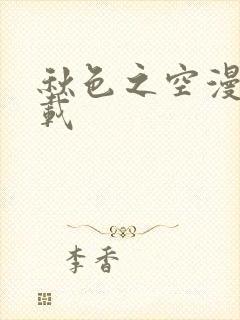 秋色之空漫
載
李香